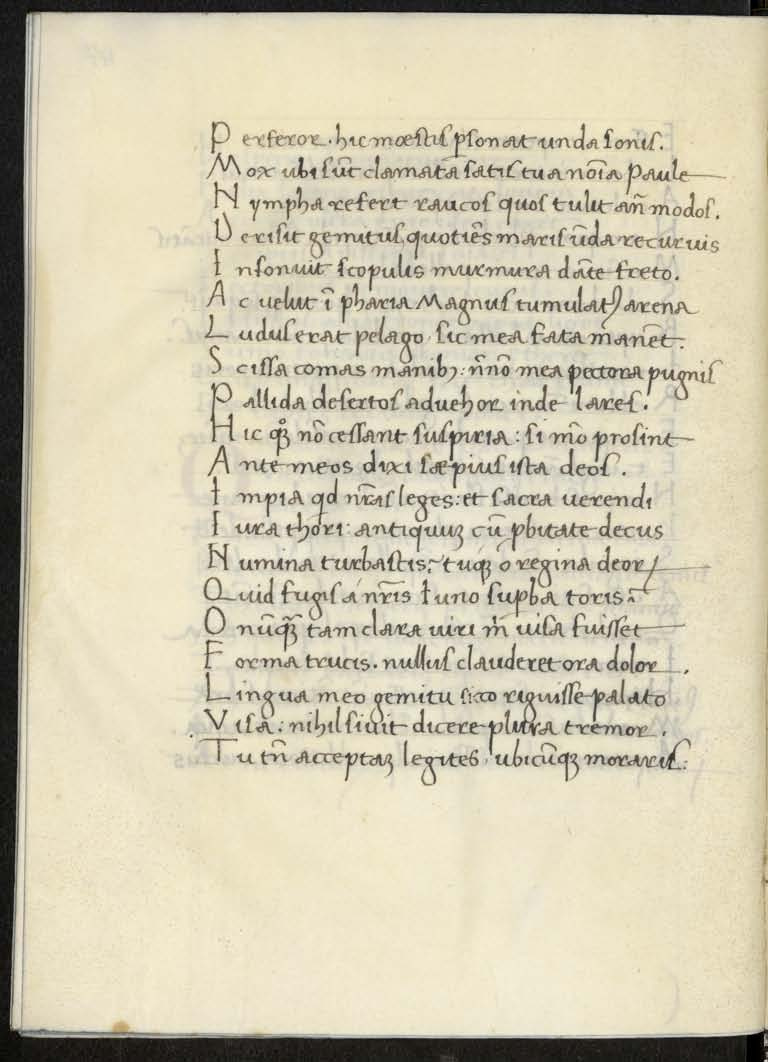 Perferor. hic mœstis ꝑsonat unda sonis.
Mox ubi sūt clamata satis tua noīa Paule
Nympha refert raucos quos tulit an̄ modos.
Verisit gemitus, quotiēs maris ūda recuruis
Insonuit scopulis murmura dāte freto.
Ac uelut ī pharia Magnus tumulatꝰ arena
Ludus erat pelago, sic mea fata manēt.
Scissa comas manibꝫ: n̄nō mea pectora pugnis
Pallida desertos aduehor inde lares.
Hic qͦꝫ nō cessant suspiria: si mō prosint
Ante meos dixi sæpius ista deos.
Impia qd nr̄as leges: et sacra uerendi
Iura thori: antiquuꝫ cū ꝓbitate decus
Numina turbastis: tuqꝫ ô regina deoꝝ
Quid fugis á nr̄is Iuno supba toris:
O nūqꝫ̄ tam clara uiri m̄ uisa fuisset
Forma trucis. nullus clauderet ora dolor.
Lingua meo gemitu sicco riguisse palato
Visa: nihil siuit dicere plura tremor.
Tu tn̄ acceptaꝫ legites, ubicūqꝫ moraris: